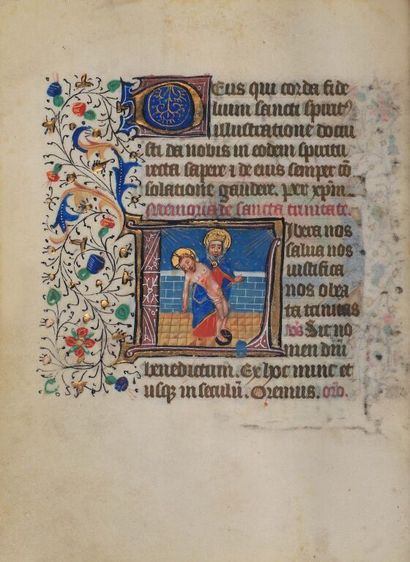 Deus qui corda fide
lium sancti spiritꝰ
illustratione docui
sti da nobis in eodem spiritu
recta sapere ⁊ de eius semper cō
solatione gaudere. per xp̄m
Memoria de sancta trinitate.
Libera nos
salva nos
iustifica
nos o bea
ta trinitas
Sit no
men dn̄i
benedictum. Ex hoc nunc et
usqꝫ in seculū. Oremus. oro.